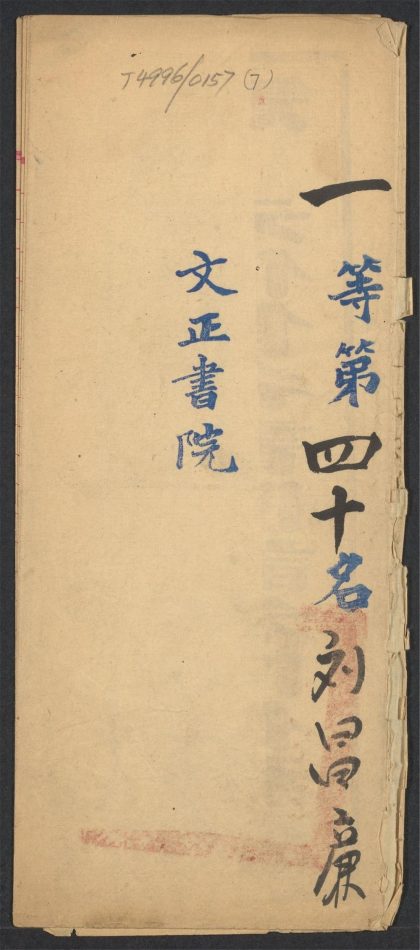 T4996/0157 (7)
一等第四十名刘昌廉
文正書院